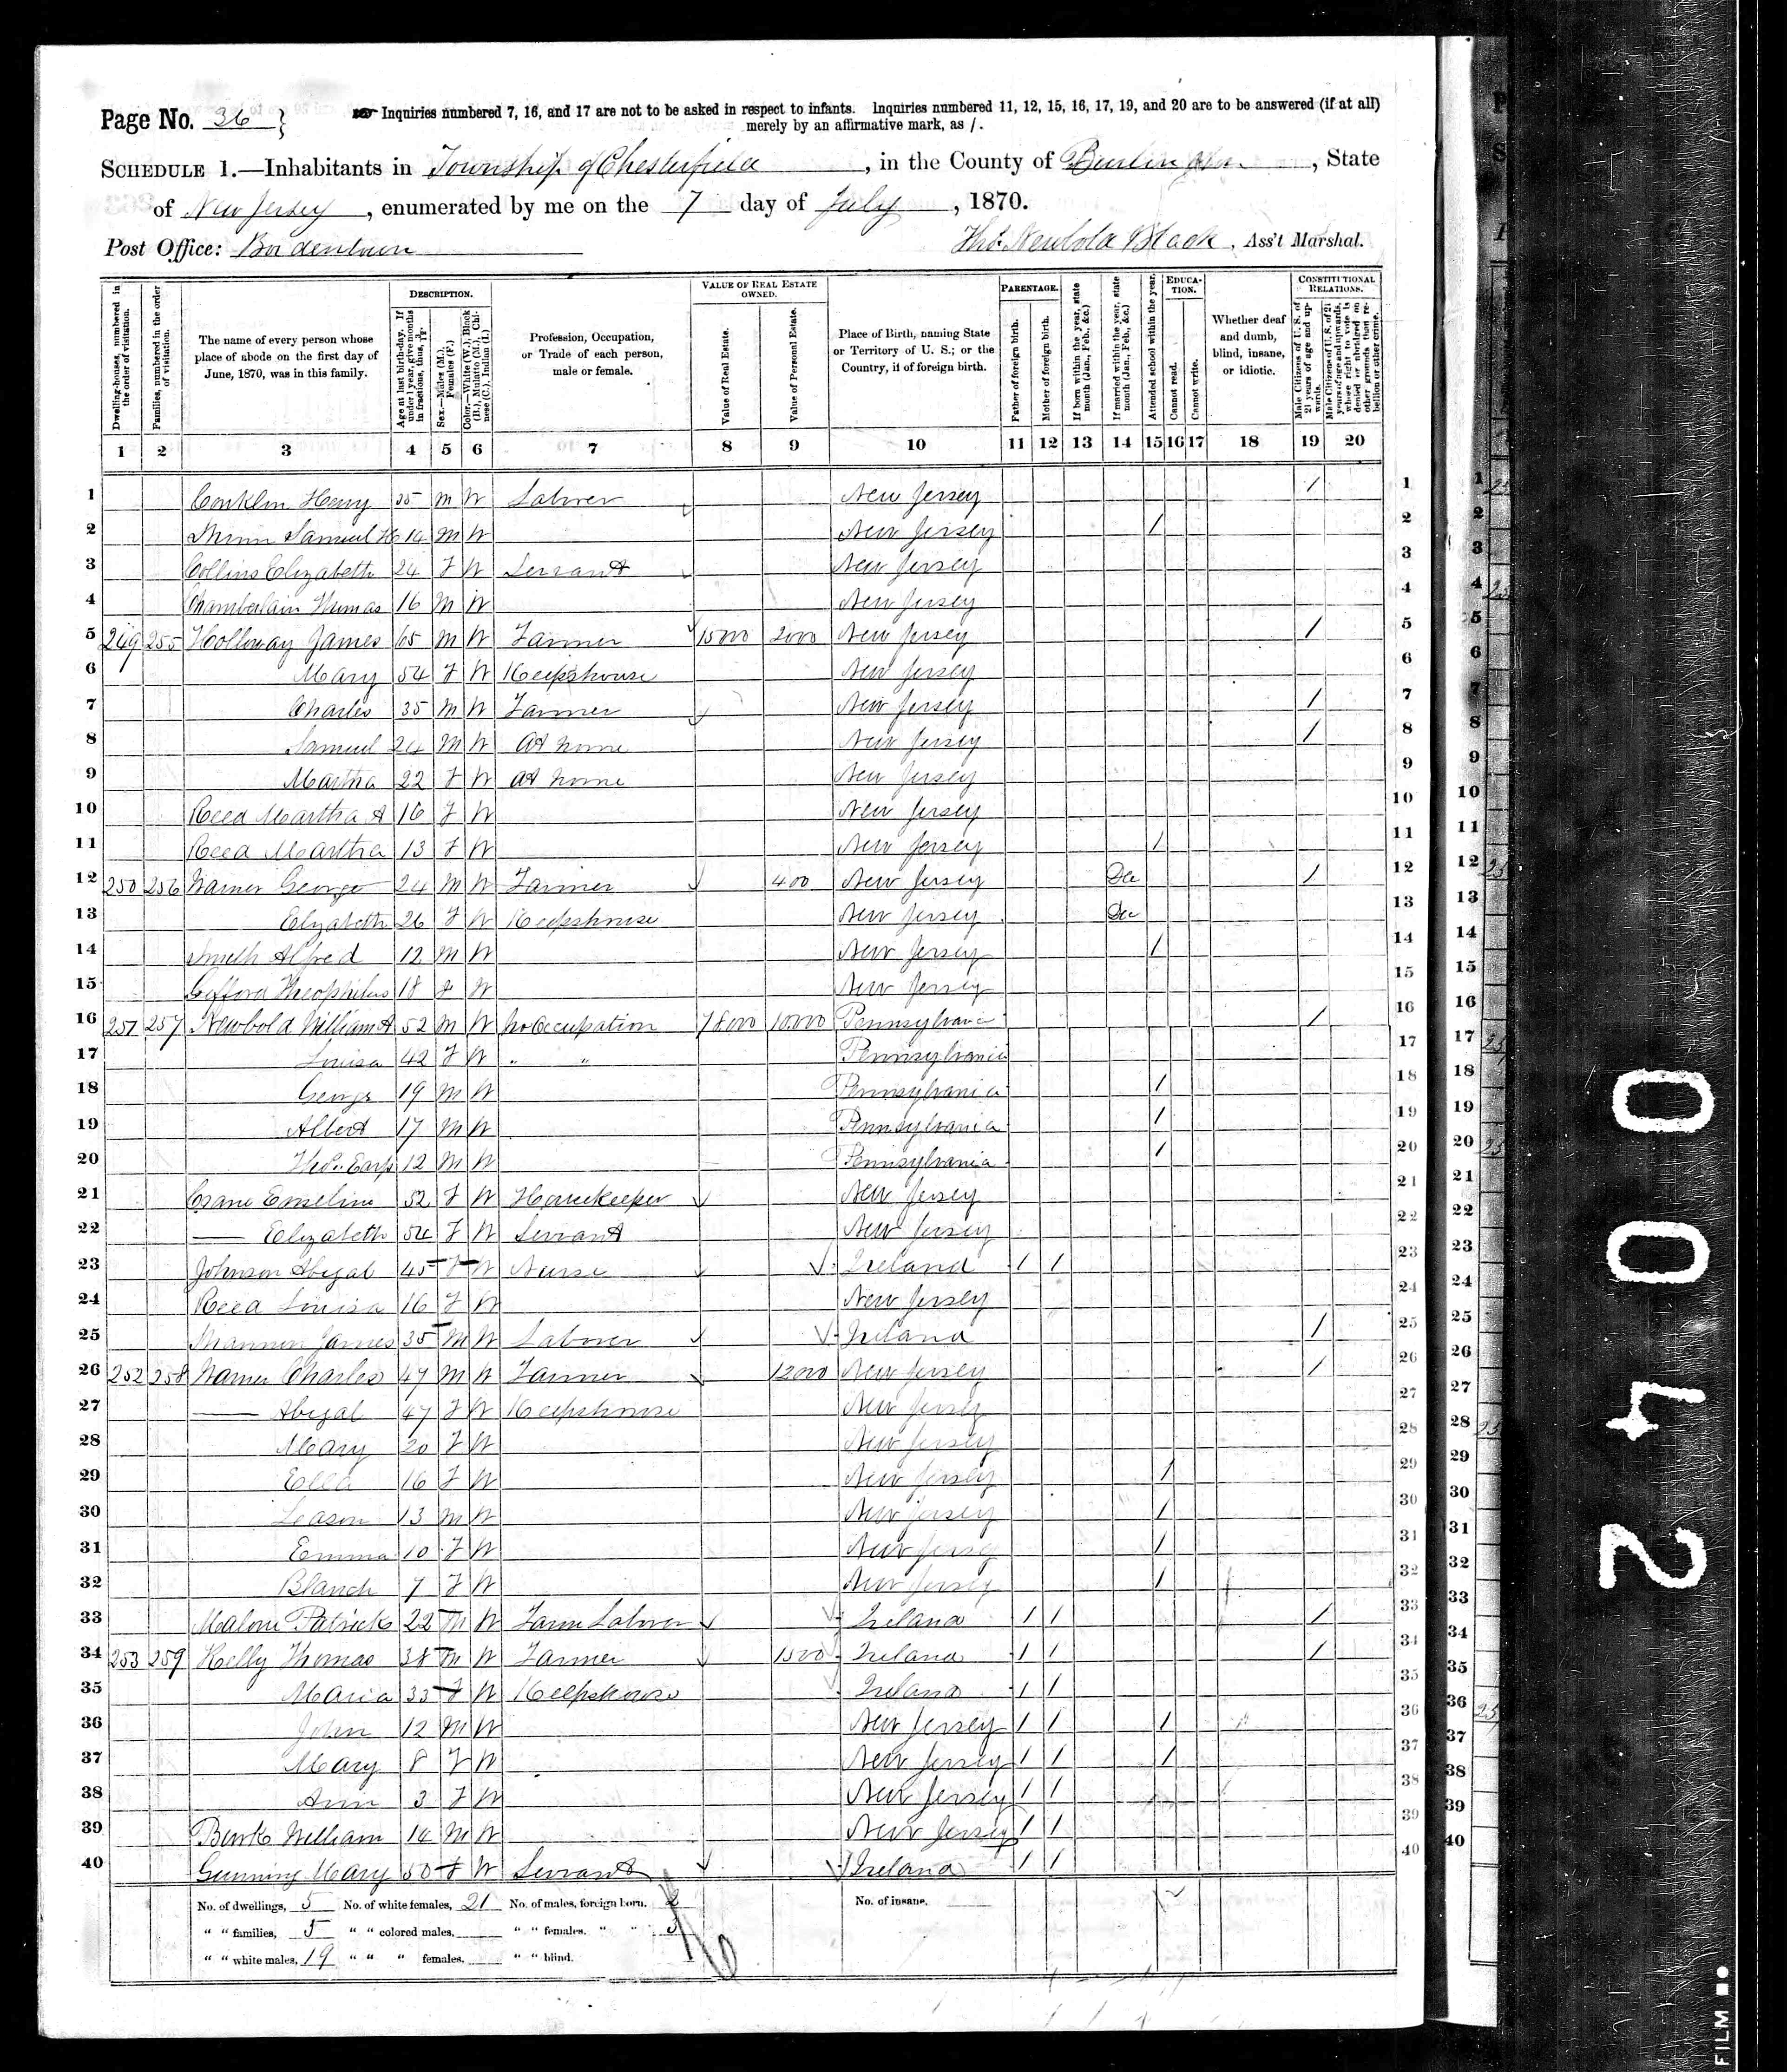 Page No. 36 } Inquiries numbered 7, 16, and 17 are not to be asked in respect to infants. Inquiries numbered 11, 12, 15, 16, 17, 19, and 20 are to be answered (if at all)
merely by an affirmative mark, as /.
SCHEDULE 1.—Inhabitants in Township of Chesterfield, in the County of Burlington, State
of New Jersey, enumerated by me on the 7 day of July, 1870.
Post Office: Bordentown Thos. Newbold Black, Ass't Marshal.
Dwelling-houses, numbered in the order of visitation.
Families, numbered in the order of visitation.
The name of every person whose place of abode on the first day of June, 1870, was in this family.
DESCRIPTION.
Age at last birth-day. If under 1 year, give months in fractions, thus,
Sex.—Males (M.), Females (F.)
Color.—White (W.), Black (B.), Mulatto (M.), Chinese (C.), Indian (I.)
Profession, Occupation, or Trade of each person, male or female.
VALUE OF REAL ESTATE OWNED.
Value of Real Estate.
Value of Personal Estate.
Place of Birth, naming State or Territory of U. S.; or the Country, if of foreign birth.
PARENTAGE.
Father of foreign birth.
Mother of foreign birth.
If born within the year, state month (Jan., Feb., &c.)
If married within the year, state month (Jan., Feb., &c.)
Attended school within the year.
EDUCATION.
Cannot read.
Cannot write.
Whether deaf and dumb, blind, insane, or idiotic.
CONSTITUTIONAL RELATIONS.
Male Citizens of U. S. of 21 years of age and upwards.
Male Citizens of U. S. of 21 years of age and upwards, whose right to vote is denied or abridged on other grounds than rebellion or other crime.
1 2 3 4 5 6 7 8 9 10 11 12 13 14 15 16 17 18 19 20
1 Conklin Henry 35 M W Laborer New Jersey / 1
2 Samuel H 14 M W New Jersey / 2
3 Collins Elizabeth 24 F W Servant New Jersey 3
4 Chamberlain Thomas 16 M W New Jersey 4
5 249 255 Holloway James 65 M W Farmer 15000 2000 New Jersey / 5
6 Mary 54 F W Keepshouse New Jersey 6
7 Charles 35 M W Farmer New Jersey / 7
8 Samuel 24 M W At home New Jersey / 8
9 Martha 22 F W At home New Jersey 9
10 Reed Martha A 16 F W New Jersey 10
11 Reed Martha 13 F W New Jersey / 11
12 250 256 George 24 M W Farmer 400 New Jersey Dec / 12
13 Elizabeth 26 F W Keepshouse New Jersey Dec 13
14 Smith Alfred 12 M W New Jersey / 14
15 Theophilus 18 W New Jersey 15
16 251 257 Newbold William A 52 M W No Occupation 78000 10000 Pennsylvania / 16
17 Louisa 42 F W " " Pennsylvania 17
18 George 19 M W Pennsylvania / 18
19 Albert 17 M W Pennsylvania / 19
20 Thos. Earp 12 M W Pennsylvania / 20
21 Crane Emeline 52 F W Housekeeper New Jersey 21
22 —— Elizabeth 54 F W Servant New Jersey 22
23 Johnson Abigal 45 F W Nurse Ireland / / 23
24 Reed Louisa 16 F W New Jersey 24
25 James 35 M W Laborer Ireland / 25
26 252 258 Charles 47 M W Farmer 12000 New Jersey / 26
27 —— Abigal 47 F W Keepshouse New Jersey 27
28 Mary 20 F W New Jersey 28
29 Ella 16 F W New Jersey / 29
30 Leason 13 M W New Jersey / 30
31 Emma 10 F W New Jersey / 31
32 Blanch 7 F W New Jersey / 32
33 Malone Patrick 22 M W Farm Laborer Ireland / / / 33
34 253 259 Kelly Thomas 38 M W Farmer 1500 Ireland / / / 34
35 Maria 33 F W Keepshouse Ireland / / 35
36 John 12 M W New Jersey / / / 36
37 Mary 8 F W New Jersey / / / 37
38 Ann 3 F W New Jersey / / 38
39 William 14 M W New Jersey / / 39
40 Gunning Mary 50 F W Servant Ireland / / 40
No. of dwellings, 5 No. of white females, 21 No. of males, foreign born, No. of insane,
" " families, 5 " " colored males, " " females, " " 3
" " white males, 19 " " " females, " " blind.
0042
FILM